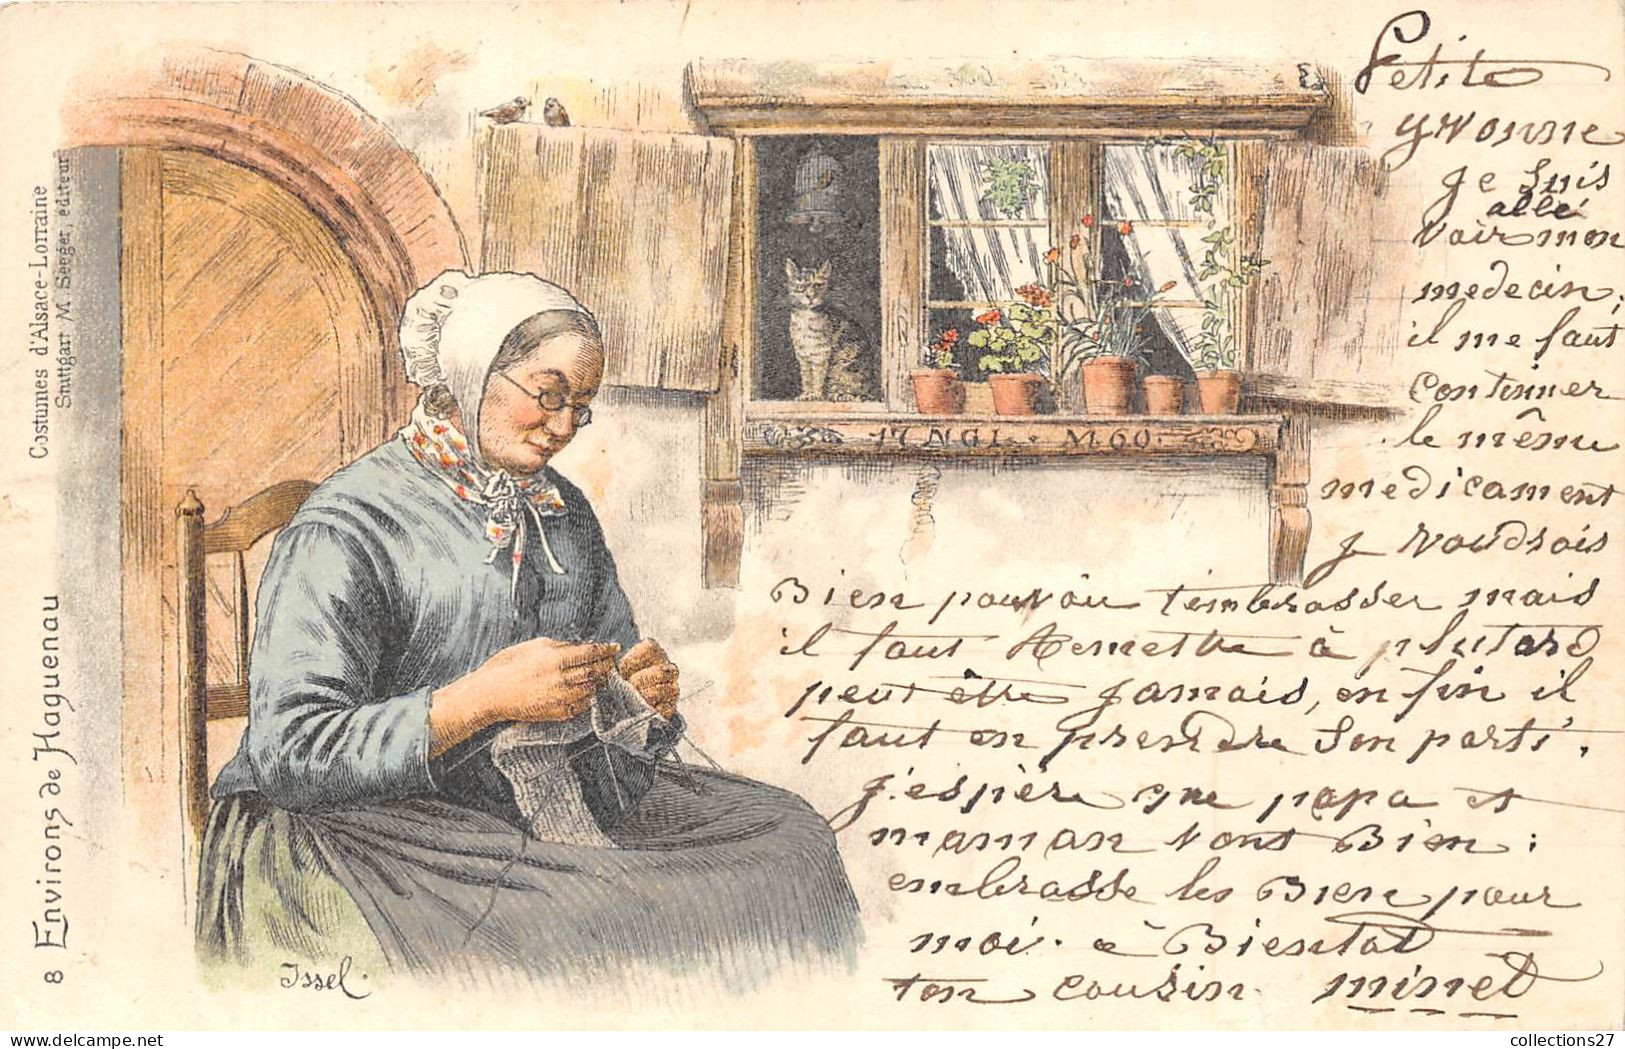 Costumes d'Alsace-Lorraine
Stuttgart M. Seeger, éditeur
8 Environs de Haguenau
17 NGL. M.60.
Issel.
Petite
yvonne
je suis
allé
voir mon
medecin,
il me faut
continuer
le même
medicament
je voudrais
Bien pouvoir t'embrasser mais
il faut Remettre à plutard
peut être jamais, en fin il
faut en prendre son parti,
j'espère que papa et
maman vont Bien:
embrasse les Bien pour
moi. à Bientot
ton cousin minet
collections27